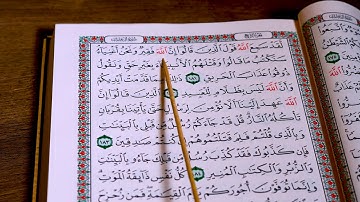 لَّقَدْ سَمِعَ ٱللَّهُ قَوْلَ ٱلَّذِينَ قَالُوٓا۟ إِنَّ ٱللَّهَ فَقِيرٌ وَنَحْنُ أَغْنِيَآءُ
سَنَكْتُبُ مَا قَالُوا۟ وَقَتْلَهُمُ ٱلْأَنۢبِيَآءَ بِغَيْرِ حَقٍّ وَنَقُولُ
ذُوقُوا۟ عَذَابَ ٱلْحَرِيقِ ١٨١ ذَٰلِكَ بِمَا قَدَّمَتْ أَيْدِيكُمْ
وَأَنَّ ٱللَّهَ لَيْسَ بِظَلَّامٍ لِّلْعَبِيدِ ١٨٢ ٱلَّذِينَ قَالُوٓا۟ إِنَّ
ٱللَّهَ عَهِدَ إِلَيْنَآ أَلَّا نُؤْمِنَ لِرَسُولٍ حَتَّىٰ يَأْتِيَنَا بِقُرْبَانٍ
تَأْكُلُهُ ٱلنَّارُ قُلْ قَدْ جَآءَكُمْ رُسُلٌ مِّن قَبْلِى بِٱلْبَيِّنَٰتِ
وَبِٱلَّذِى قُلْتُمْ فَلِمَ قَتَلْتُمُوهُمْ إِن كُنتُمْ صَٰدِقِينَ ١٨٣
فَإِن كَذَّبُوكَ فَقَدْ كُذِّبَ رُسُلٌ مِّن قَبْلِكَ جَآءُو بِٱلْبَيِّنَٰتِ
وَٱلزُّبُرِ وَٱلْكِتَٰبِ ٱلْمُنِيرِ ١٨٤ كُلُّ نَفْسٍ ذَآئِقَةُ ٱلْمَوْتِ
وَإِنَّمَا تُوَفَّوْنَ أُجُورَكُمْ يَوْمَ ٱلْقِيَٰمَةِ فَمَن زُحْزِحَ